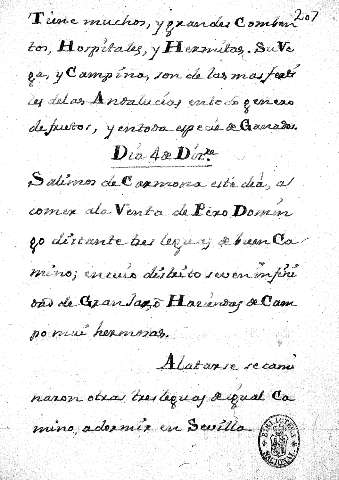 207
Tiene muchos, y grandes Comben
tos, Hospitales, y Hermitas. Su Ve
ga, y Campiña, son de las mas ferti
les de las Andalucias en todo genero
de frutos, y en toda especie de Ganados.
Dia 4 de Diz.re
Salimos de Carmona este dia, a
comer a la Venta de Pero Domin
go distante tres leguas de buen Ca
mino; en cuio distrito se ven infini
de Granjas, o Haciendas de Cam
po mui hermosas.
A la tarde se cami
naron otras tres leguas de igual Ca
mino, a dormir en Sevilla.
BIBLIOTECA NACIONAL